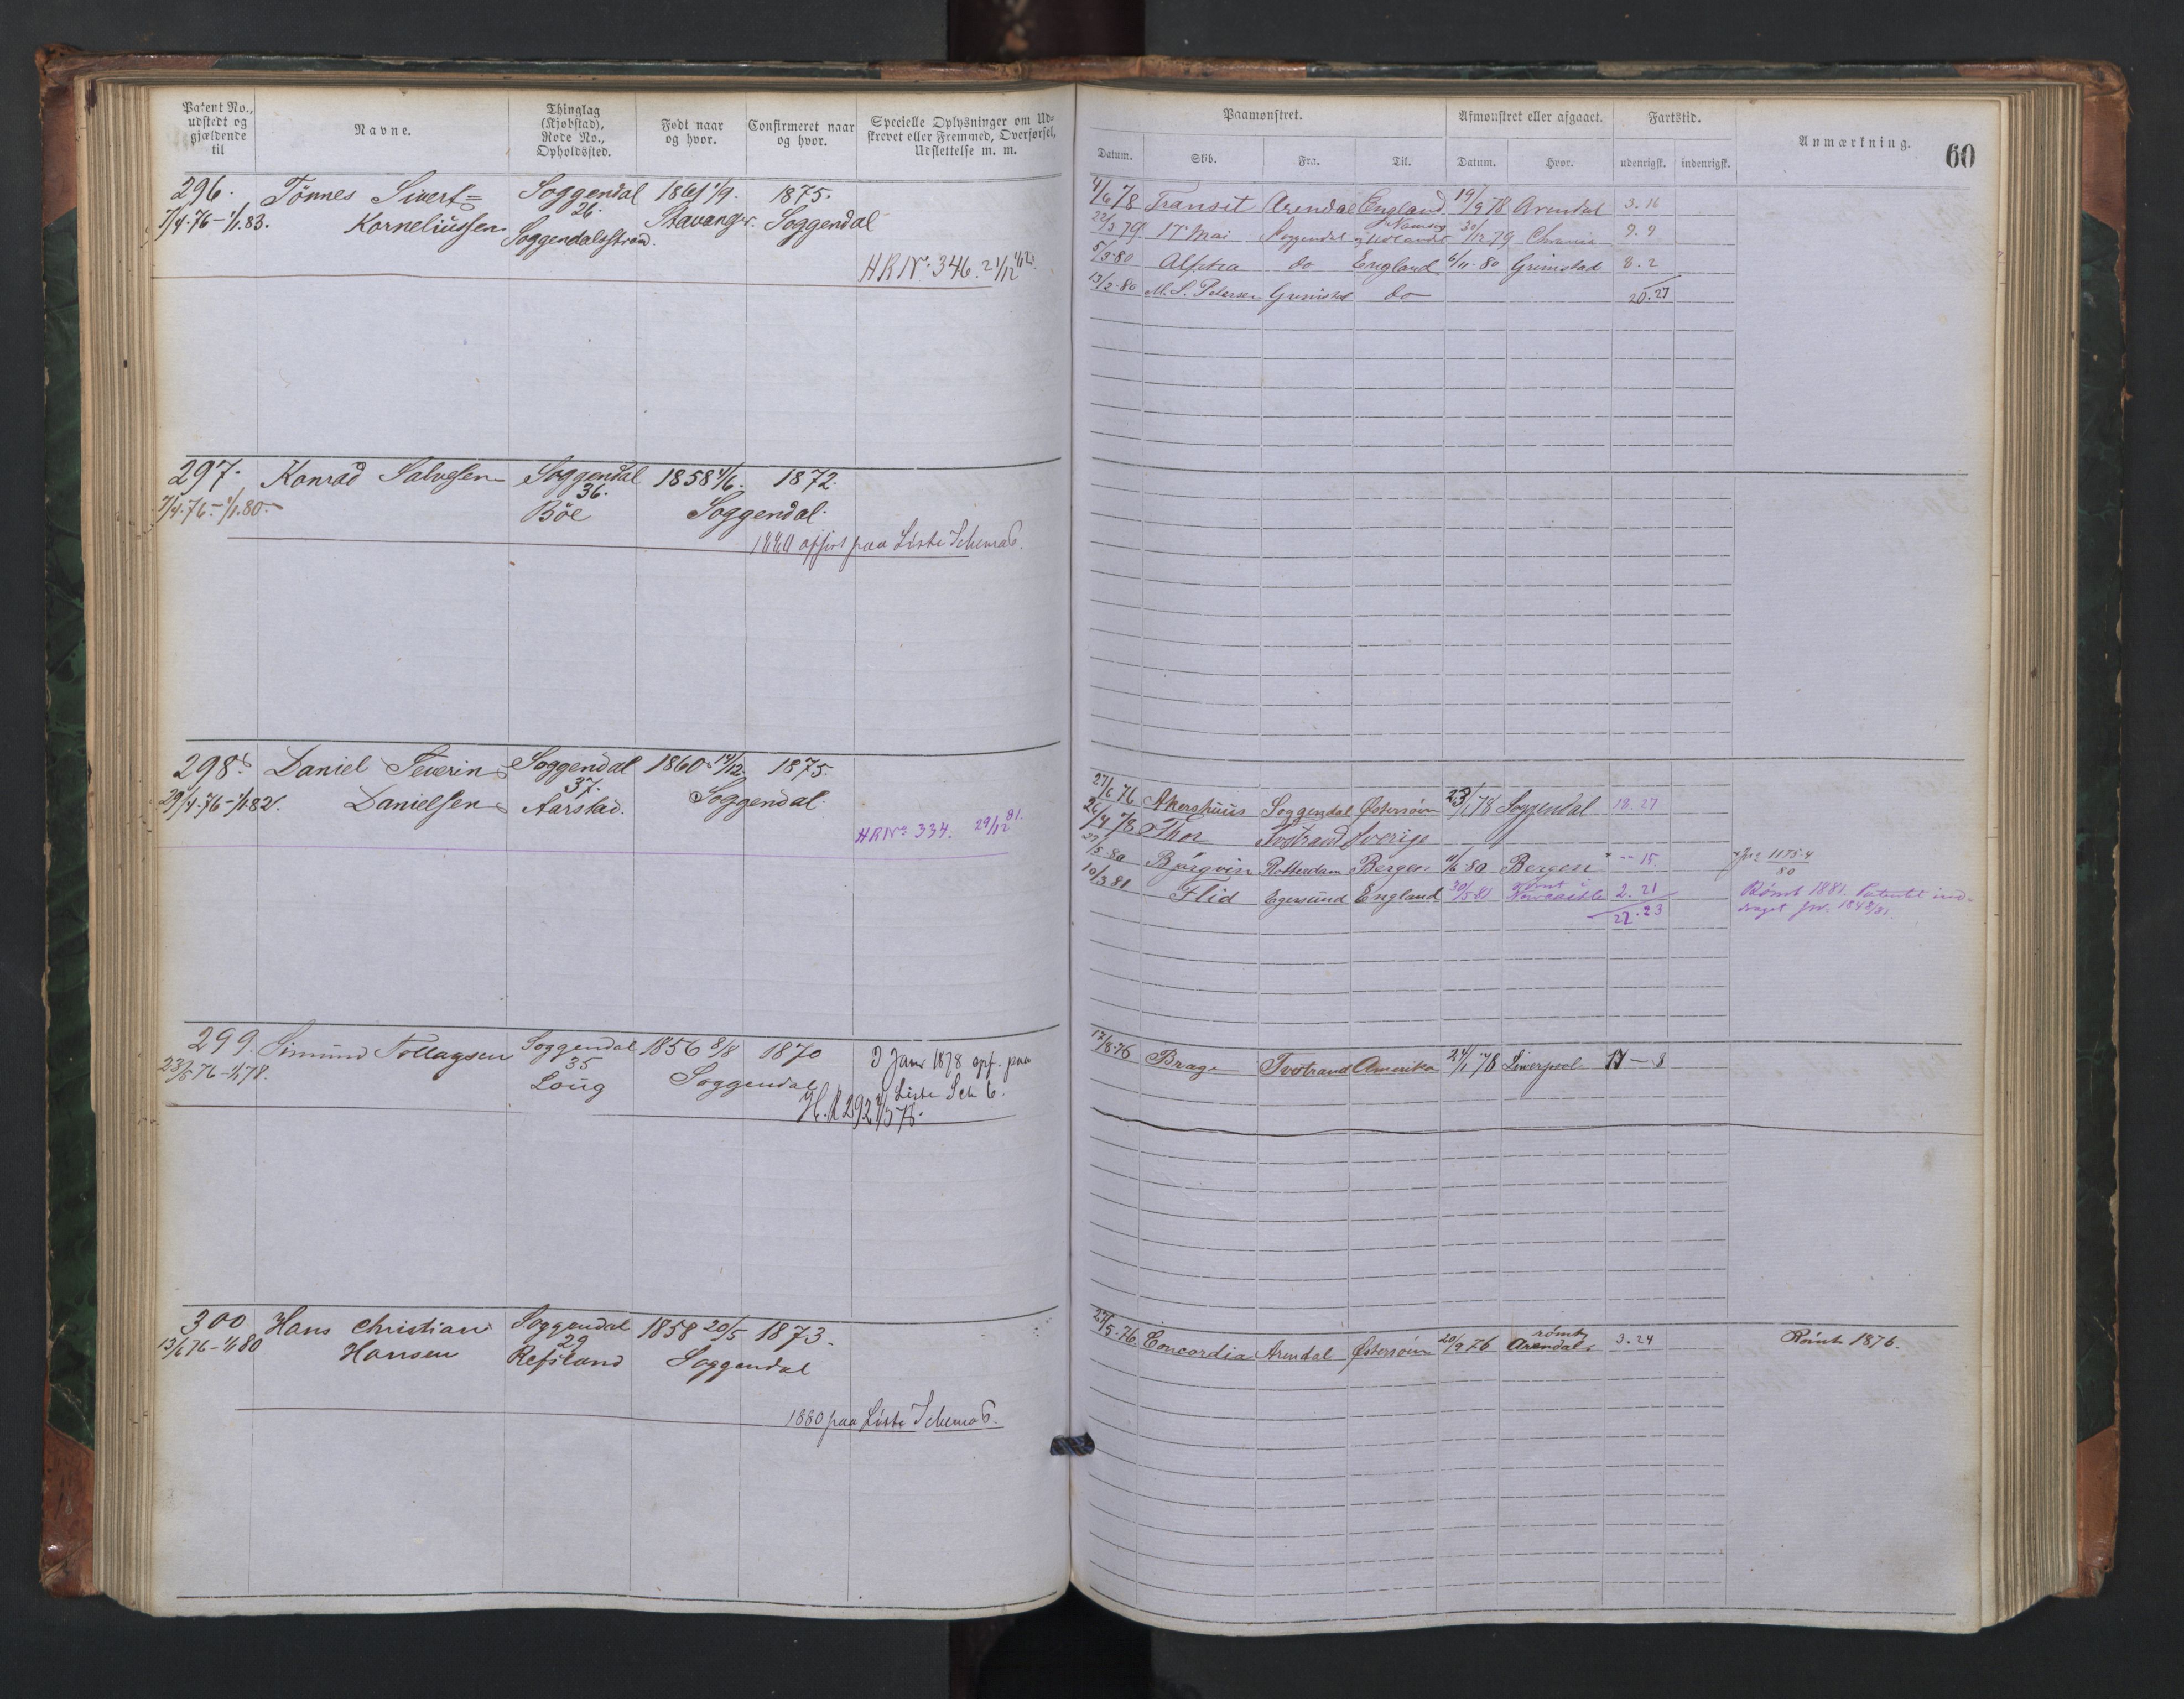 Patent No., udstedt og gjældende til
Navne.
Thinglag (Kjøbstad), Rode No., Opholdssted.
Født naar og hvor.
Confirmeret naar og hvor.
Specielle Oplysninger om Udskrevet eller Fremmed, Overførsel, Udslettelse m. m.
Paamønstret.
Afmønstret eller afgaaet.
Fartstid.
Anmærkning.
60
Datum.
Skib.
Fra.
Til.
Datum.
Hvor.
udenrigsk.
indenrigsk.
296. Tönnes Sivert= Soggendal 1861 1/9. 1875.
7/4.76-1/1.83. Korneliussen 26. Stavanger. Soggendal
Soggendalsstrand.
HR No. 346. 21/12
1/6 78 Transit Arendal England 19/9 78 Arendal 3.16
22/3 79. 17 Mai Soggendal 30/12 79 Chrania 9.9
5/3 80 Alpha do England 6/11.80 Grimstad 8.2
13/2.80 M. S. Petersen Grimstad do 20.27
297. Konrad Salvesen Soggendal 1858 4/6. 1872.
7/4.76-1/1.80. 36. Soggendal.
Böe
1880 opført paa Liste Schema 6.
298. Daniel Severin Soggendal 1860 14/12. 1875.
29/4.76-1/1.82. Danielsen 37. Soggendal.
Aarstad.
HR No. 334. 29/12 81.
27/6 76 Akershuus Soggendal Østersøen 23/1 78 Soggendal 18.27
26/4 78 Thor Tvdstrand Sverige
27/5.80 Björgvin Rotterdam Bergen 11/6 80 Bergen " - 15. Jr. 1175.4/80
10/3 81 Flid Egersund England 30/5 81 rømt i Newcastle 2.21 Rømt 1881. Patentet ind=
22.23 draget Jr. 1848/81.
299. Simund Tollagsen Soggendal 1856 8/8 1870 I Janr 1878 opf. paa
23/5 76-1/1 78. 35 Soggendal Liste Sch 6.
Loug H.R 292
17/8.76 Brage Tvdstrand Amerika 24/1 78 Liverpool 17-8
300 Hans Christian Soggendal 1858 20/5 1873.
13/6 76-1/1 80 Hansen 29 Soggendal
Refsland
1880 paa Liste Schema 6.
27/5.76 Concordia Arendal Østersøen 20/9 76 rømt Arendal. 3.24 Rømt 1876.